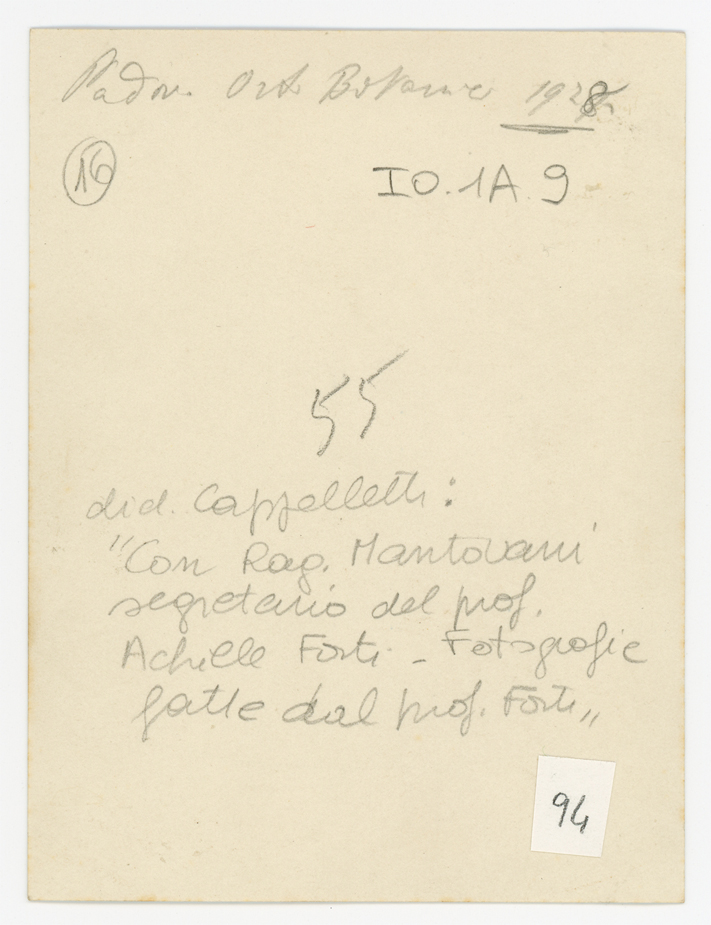 Padova Orto Botanico 1928
16
IO.1A.9
55
did. Cappelletti:
"Con Rag. Mantovani
segretario del prof.
Achille Forti - Fotografie
fatte dal prof. Forti"
94